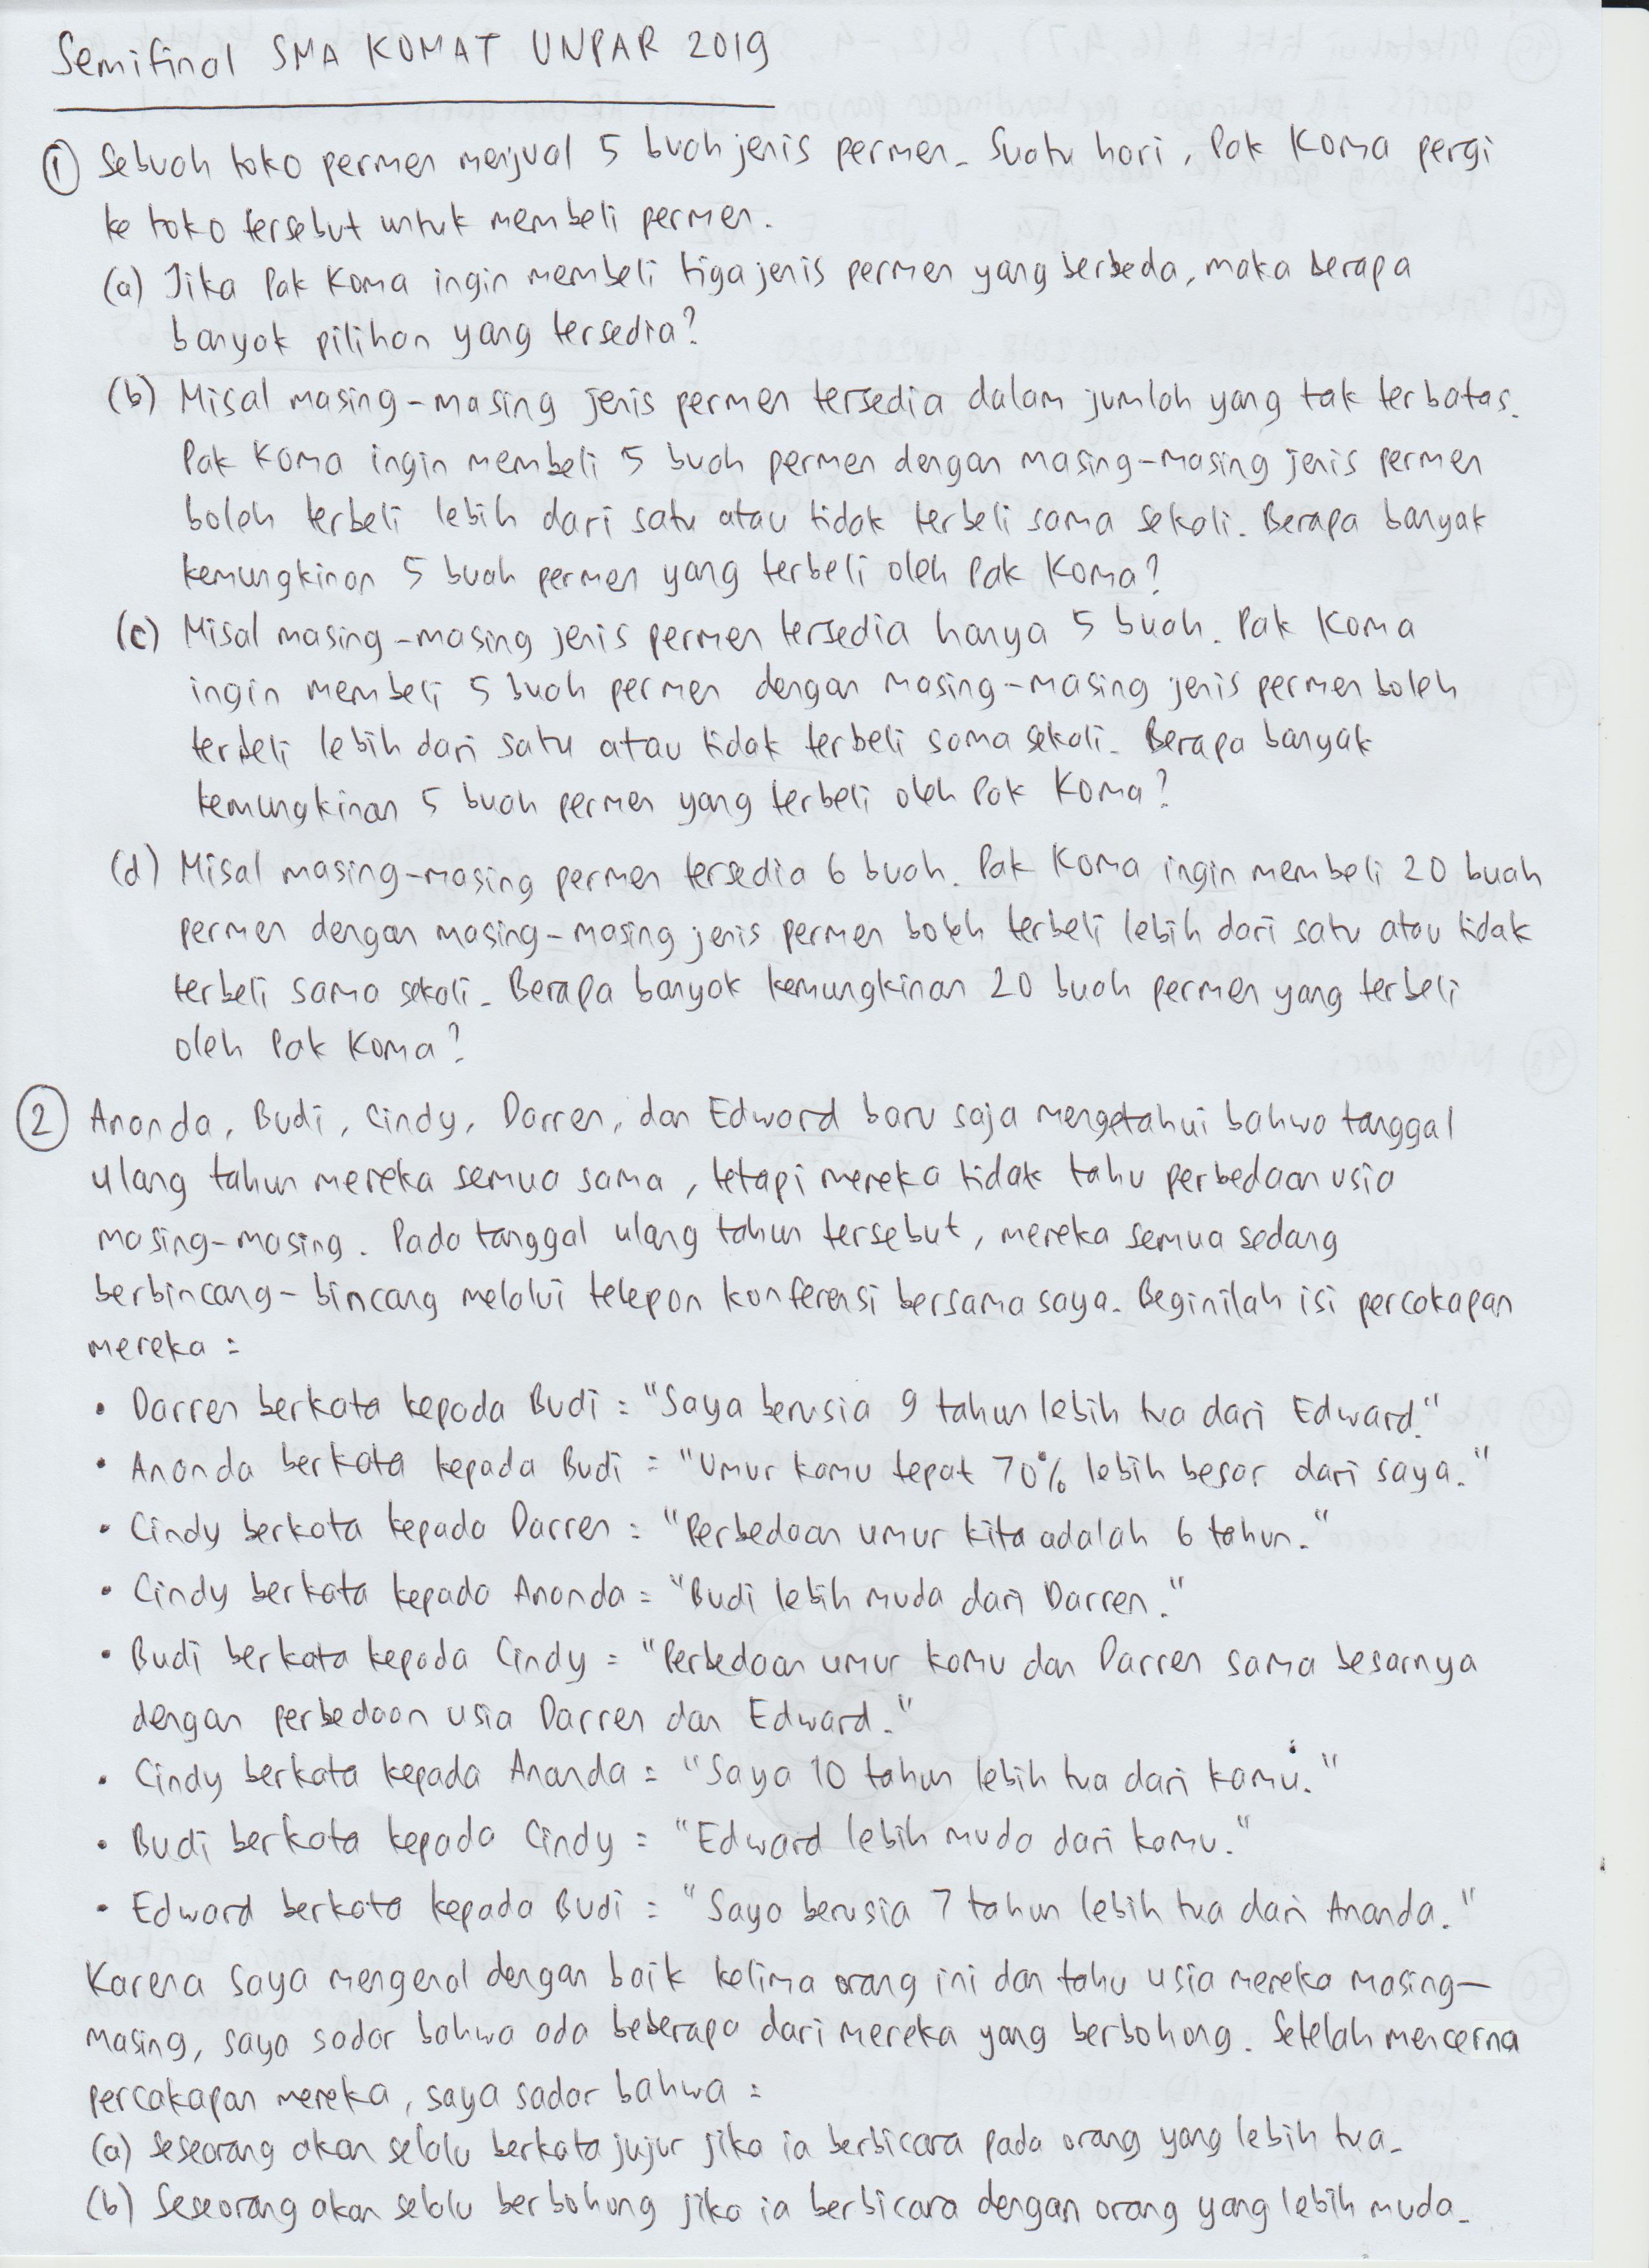 Semifinal SMA KOMAT UNPAR 2019
① Sebuah toko permen menjual 5 buah jenis permen. Suatu hari, Pak Koma pergi
ke toko tersebut untuk membeli permen.
(a) Jika Pak Koma ingin membeli tiga jenis permen yang berbeda, maka berapa
banyak pilihan yang tersedia?
(b) Misal masing-masing jenis permen tersedia dalam jumlah yang tak terbatas.
Pak Koma ingin membeli 5 buah permen dengan masing-masing jenis permen
boleh terbeli lebih dari satu atau tidak terbeli sama sekali. Berapa banyak
kemungkinan 5 buah permen yang terbeli oleh Pak Koma?
(c) Misal masing-masing jenis permen tersedia hanya 5 buah. Pak Koma
ingin membeli 5 buah permen dengan masing-masing jenis permen boleh
terbeli lebih dari satu atau tidak terbeli sama sekali. Berapa banyak
kemungkinan 5 buah permen yang terbeli oleh Pak Koma?
(d) Misal masing-masing permen tersedia 6 buah. Pak Koma ingin membeli 20 buah
permen dengan masing-masing jenis permen boleh terbeli lebih dari satu atau tidak
terbeli sama sekali. Berapa banyak kemungkinan 20 buah permen yang terbeli
oleh Pak Koma?
② Ananda, Budi, Cindy, Darren, dan Edward baru saja mengetahui bahwa tanggal
ulang tahun mereka semua sama, tetapi mereka tidak tahu perbedaan usia
masing-masing. Pada tanggal ulang tahun tersebut, mereka semua sedang
berbincang-bincang melalui telepon konferensi bersama saya. Beginilah isi percakapan
mereka :
• Darren berkata kepada Budi : "Saya berusia 9 tahun lebih tua dari Edward."
• Ananda berkata kepada Budi : "Umur kamu tepat 70% lebih besar dari saya."
• Cindy berkata kepada Darren : "Perbedaan umur kita adalah 6 tahun."
• Cindy berkata kepada Ananda : "Budi lebih muda dari Darren."
• Budi berkata kepada Cindy : "Perbedaan umur kamu dan Darren sama besarnya
dengan perbedaan usia Darren dan Edward."
• Cindy berkata kepada Ananda : "Saya 10 tahun lebih tua dari kamu."
• Budi berkata kepada Cindy : "Edward lebih muda dari kamu."
• Edward berkata kepada Budi : "Saya berusia 7 tahun lebih tua dari Ananda."
Karena saya mengenal dengan baik kelima orang ini dan tahu usia mereka masing-
masing, saya sadar bahwa ada beberapa dari mereka yang berbohong. Setelah mencerna
percakapan mereka, saya sadar bahwa :
(a) Seseorang akan selalu berkata jujur jika ia berbicara pada orang yang lebih tua.
(b) Seseorang akan selalu berbohong jika ia berbicara dengan orang yang lebih muda.